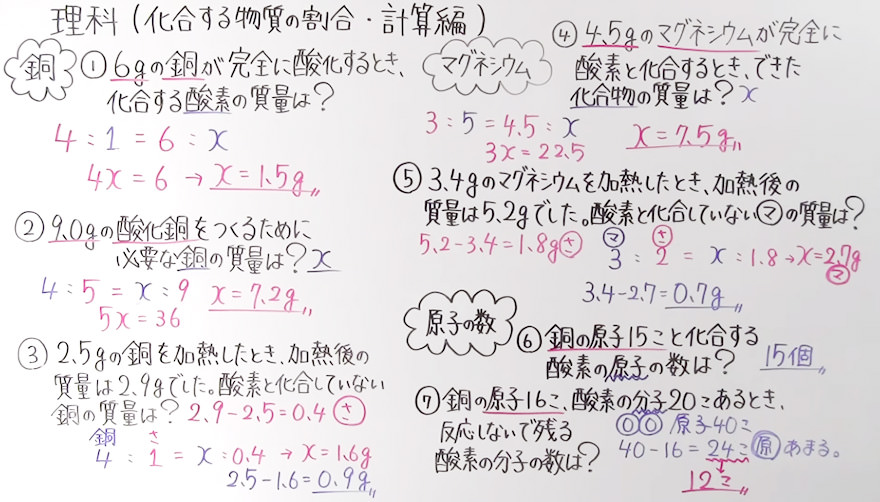 理科(化合する物質の割合・計算編)
銅
①6gの銅が完全に酸化するとき、
化合する酸素の質量は?
4:1=6:x
4x=6→x=1.5g〃
②9.0gの酸化銅をつくるために
必要な銅の質量は?x
4:5=x:9 x=7.2g〃
5x=36
③2.5gの銅を加熱したとき、加熱後の
質量は2.9gでした。酸素と化合していない
銅の質量は?2.9-2.5=0.4 ㋚
銅 さ
4:1=x:0.4→x=1.6g
2.5-1.6=0.9g〃
マグネシウム
④4.5gのマグネシウムが完全に
酸素と化合するとき、できた
化合物の質量は?x
3:5=4.5:x x=7.5g〃
3x=22.5
⑤3.4gのマグネシウムを加熱したとき、加熱後の
質量は5.2gでした。酸素と化合していない㋮の質量は?
5.2-3.4=1.8g㋚ ㋮ ㋚
3:2=x:1.8→x=2.7g
㋮
3.4-2.7=0.7g〃
原子の数
⑥銅の原子15こと化合する
酸素の原子の数は? 15個〃
⑦銅の原子16こ、酸素の分子20こあるとき、
反応しないで残る
酸素の分子の数は?
〇〇原子40こ
40-16=24こ(原)あまる。
12こ〃